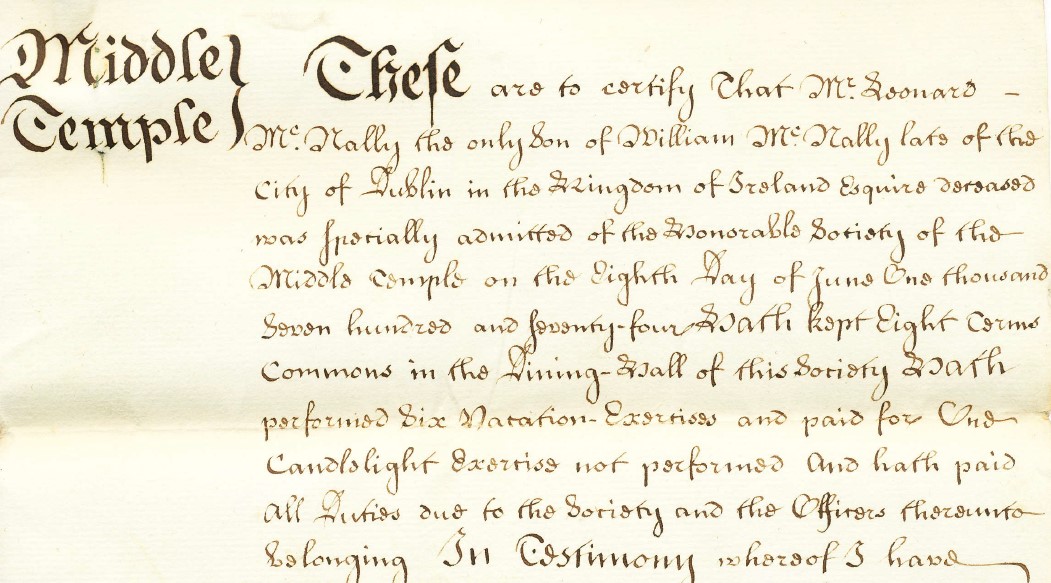 Middle }
Temple }
These are to certify That Mr. Leonard -
Mc. Nally the only Son of William Mc. Nally late of the
City of Dublin in the Kingdom of Ireland Esquire deceased
was specially admitted of the Honorable Society of the
Middle Temple on the Eighth Day of June One thousand
Seven hundred and seventy-four Hath kept Eight Terms
Commons in the Dining-Hall of this Society Hath
performed Six Vacation-Exercises and paid for One
Candlelight Exercise not performed And hath paid
All Duties due to the Society and the Officers thereunto
belonging In Testimony whereof I have